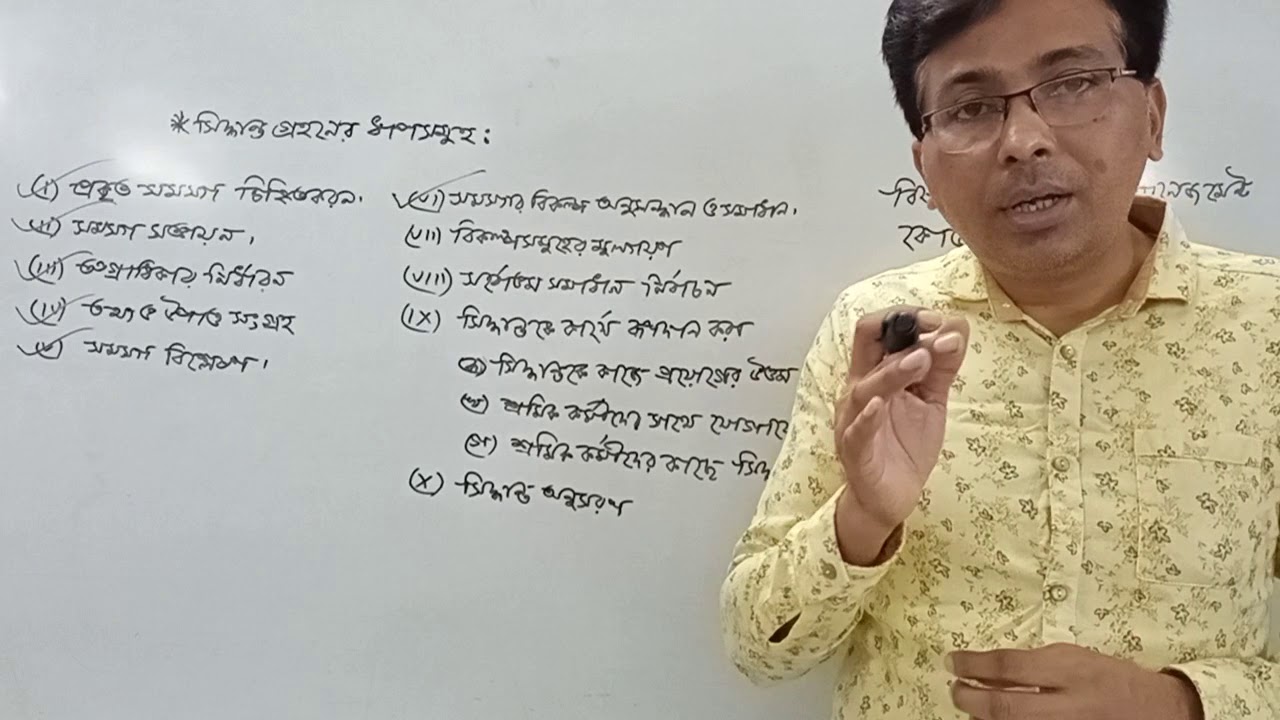 * সিদ্ধান্ত গ্রহনের ধাপসমূহ :
(i) প্রকৃত সমস্যা চিহ্নিতকরন.
(ii) সমস্যা সজ্ঞায়ন.
(iii) অগ্রাধিকার নির্ধারন
(iv) তথ্য ও উপাত্ত সংগ্রহ
(v) সমস্যা বিশ্লেষণ.
(vi) সমস্যার বিকল্প অনুসন্ধান ও সমাধান.
(vii) বিকল্পসমূহের মূল্যায়ণ
(viii) সর্বোত্তম সমাধান নির্বাচন
(ix) সিদ্ধান্তকে কার্যে রূপদান করা
(ক) সিদ্ধান্তকে কাজে প্রয়োগের উত্তম
(খ) শ্রমিক কর্মীদের সাথে
(গ) শ্রমিক কর্মীদের কাছে
(x) সিদ্ধান্ত অনুসরণ